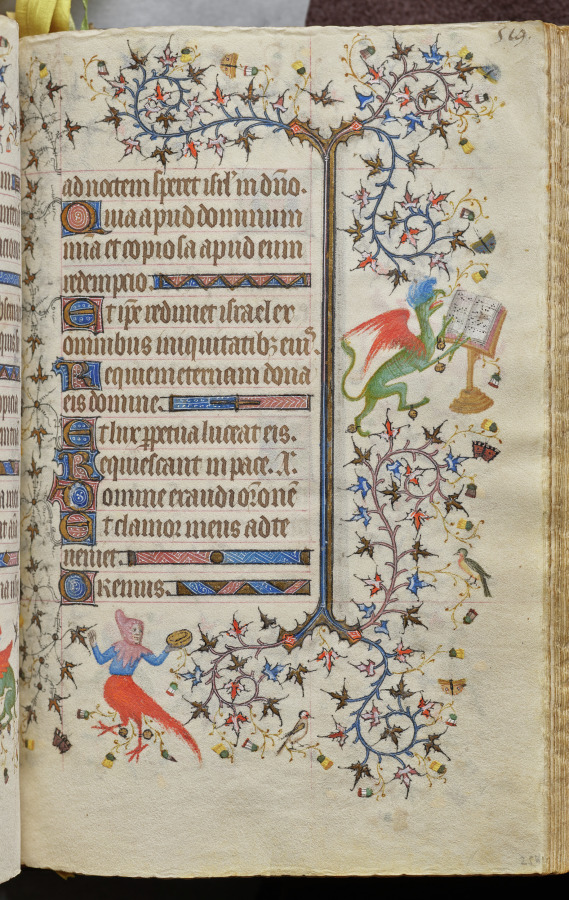 569.
ad noctem speret isrl' in dño.
Quia apud dominum
mia et copiosa apud eum
redempcio.
Et ip̃e redimet israel ex
omnibus iniquitatibꝫ eiꝰ.
Requiem eternam dona
eis domine.
Et lux ꝑpetua luceat eis.
Requiescant in pace. A:
Domine exaudi or̃onẽ
Et clamor meus ad te
veniet.
Oremus.